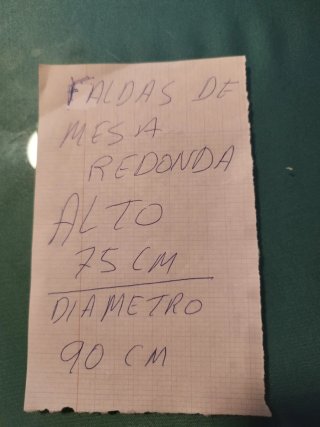 FALDAS DE
MESA
REDONDA
ALTO
75 CM
DIAMETRO
90 CM